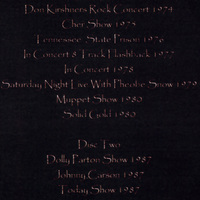 Don Kirshners Rock Concert 1974
Cher Show 1975
Tennessee State Prison 1976
In Concert 8 Track Flashback 1977
In Concert 1978
Saturday Night Live With Pheobe Snow 1979
Muppet Show 1980
Solid Gold 1980
Disc Two
Dolly Parton Show 1987
Johnny Carson 1987
Today Show 1987